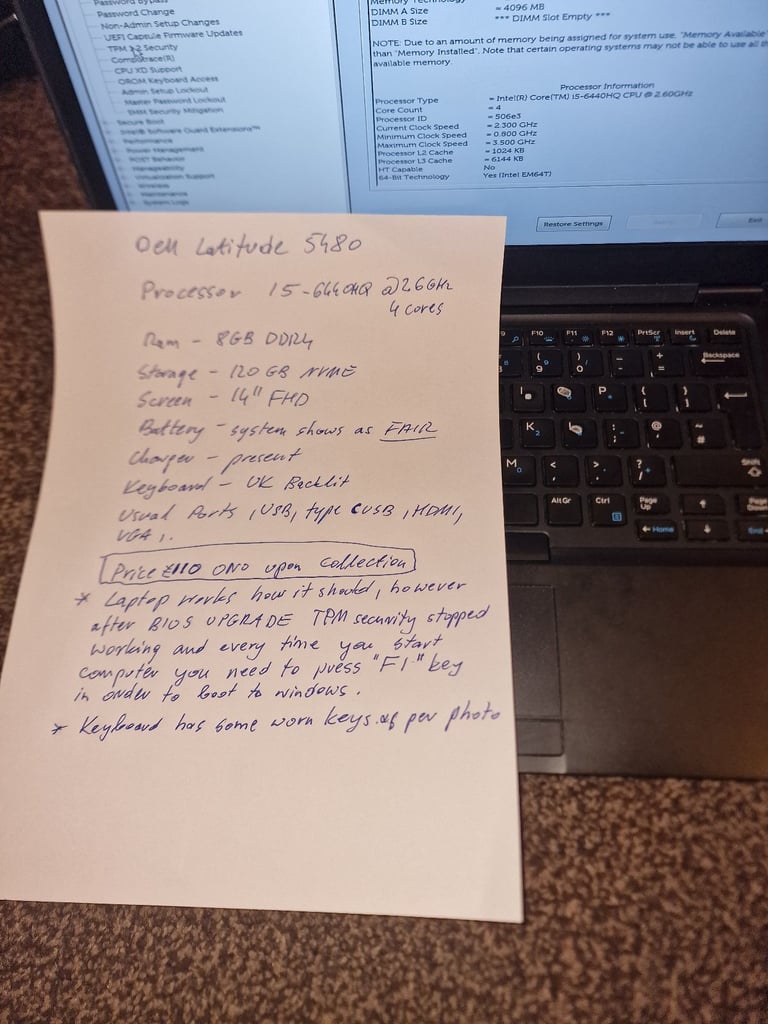 Password Bypass
Password Change
Non-Admin Setup Changes
UEFI Capsule Firmware Updates
TPM 1.2 Security
Computrace(R)
CPU XD Support
OROM Keyboard Access
Admin Setup Lockout
Master Password Lockout
SMM Security Mitigation
Secure Boot
Intel® Software Guard Extensions™
Performance
Power Management
POST Behavior
Manageability
Virtualization Support
Wireless
Maintenance
System Logs
Memory Technology
DIMM A Size = 4096 MB
DIMM B Size *** DIMM Slot Empty ***
NOTE: Due to an amount of memory being assigned for system use, "Memory Available
than "Memory Installed". Note that certain operating systems may not be able to use all th
available memory.
Processor Information
Processor Type = Intel(R) Core(TM) i5-6440HQ CPU @ 2.60GHz
Core Count = 4
Processor ID = 506e3
Current Clock Speed = 2.300 GHz
Minimum Clock Speed = 0.800 GHz
Maximum Clock Speed = 3.500 GHz
Processor L2 Cache = 1024 KB
Processor L3 Cache = 6144 KB
HT Capable No
64-Bit Technology Yes (Intel EM64T)
Restore Settings Exit
Dell Latitude 5480
Processor i5-6440HQ @2.6GHz
4 cores
Ram - 8GB DDR4
Storage - 120 GB NVME
Screen - 14" FHD
Battery - system shows as FAIR
Charger - present
Keyboard - UK Backlit
Usual Ports, USB, type C USB, HDMI,
VGA,.
Price £110 ONO upon collection
* Laptop works how it should, however
after BIOS UPGRADE TPM security stopped
working and every time you start
computer you need to press "F1" key
in order to boot to windows.
* Keyboard has some worn keys as per photo
F10 F11 F12 PrtScr Insert Delete
( 9 ) 0 _ - + = Backspace
I P { [ } ]
K 2 : ; @ ' ~ #
M 0 < , > . ? / Shift
Alt Gr Ctrl Page Up Page Down
Home End